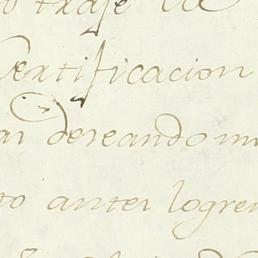 o traje la
Certificacion
ai deseando mi
to antes logre